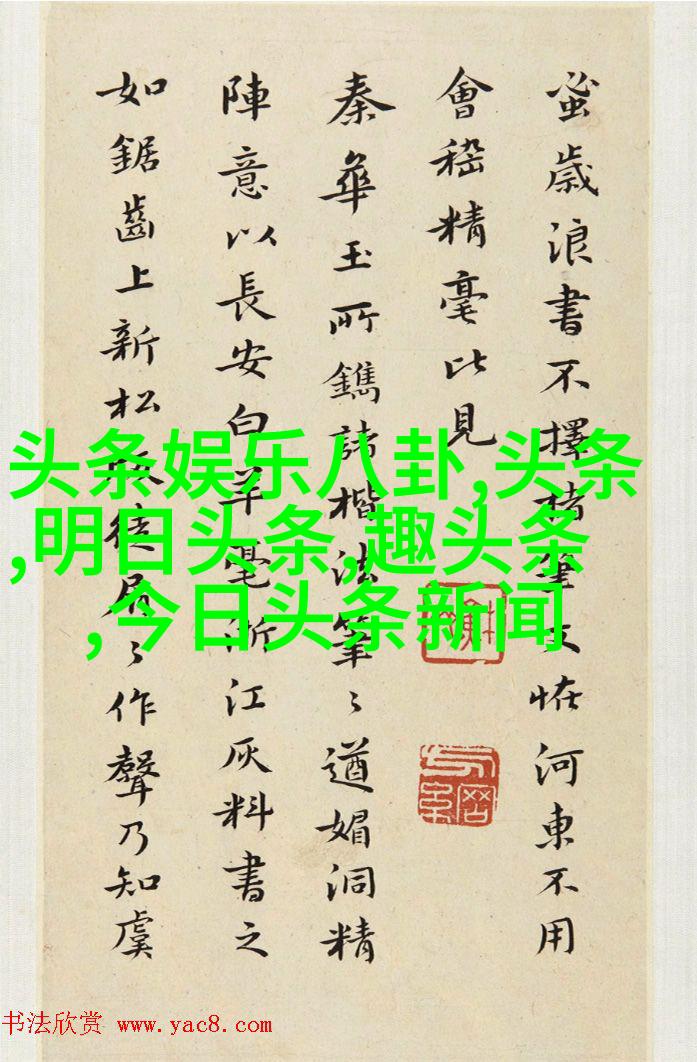 蚤歲浪書不擇楮筆又恠河東不用
會稽精毫比見
秦華玉所鐫諸楷法筆〻遒媚洞精
陣意以長安白羊毫浙江灰料書之
如鋸齒上新松徒屑〻作聲乃知虞
头条娱乐八卦,头条
,明日头条,趣头条
,今日头条新闻
书法欣赏 www.yac8.com